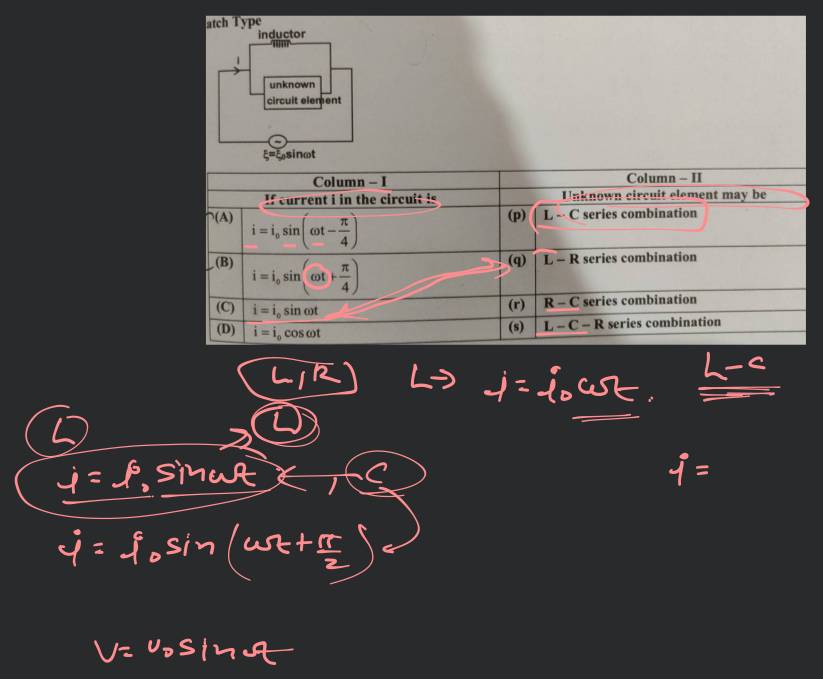 atch Type
inductor
i
unknown
circuit element
~
ξ=ξ₀sinωt
Column – I
Column – II
If current i in the circuit is
Unknown circuit element may be
(A) i = i₀ sin(ωt − π/4)
(p) L – C series combination
(B) i = i₀ sin(ωt + π/4)
(q) L – R series combination
(C) i = i₀ sin ωt
(r) R – C series combination
(D) i = i₀ cos ωt
(s) L – C – R series combination
L, R
L ⇒ i = i₀ ωt.
L-C
L
L
i = i₀ sinωt
, C
i =
i = i₀ sin (ωt + π/2)
V = V₀ sinωt